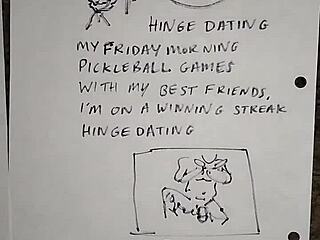 HINGE DATING
MY FRIDAY MORNING
PICKLEBALL GAMES
WITH MY BEST FRIENDS,
I'M ON A WINNING STREAK
HINGE DATING